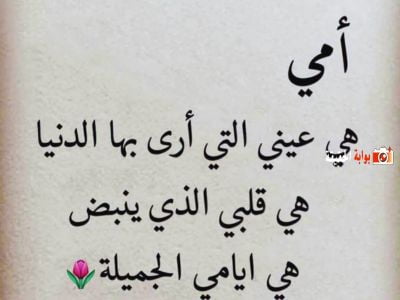 أمي
هي عيني التي أرى بها الدنيا
بوابة
هي قلبي الذي ينبض
هي ايامي الجميلة🌷